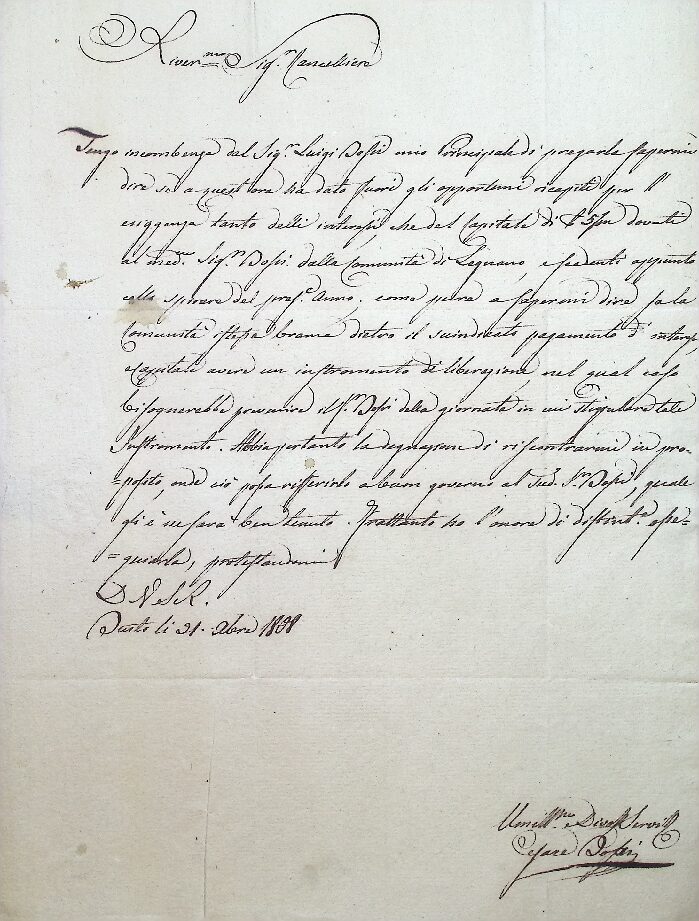 River.mo Sig.r Cancelliere
Tengo incombenza dal Sig.r Luigi Dossi mio Principale di pregarla sapermi
dire se a quest'ora ha dato fuori gli opportuni ricapiti per l'
esiggenza tanto delli interessi, che del Capitale di dovuti
al med.o Sig.r Dossi dalla Comunità di Legnano, e scadenti appunto
collo spirare del pres.e Anno, come pure a sapermi dire se la
Comunità stessa brama dietro il suindicato pagamento d'interessi,
e Capitale avere un instromento di liberazione, nel qual caso
bisognerebbe prevenire il S.r Dossi della giornata in cui stipulare tale
Instromento. Abbia pertanto la degnazione di riscontrarmi in pro=
=posito, onde ciò possa riferirlo a buon governo al Sud. S.r Dossi, quale
gli è ne sarà ben tenuto. Frattanto ho l'onore di distint.e osse=
=quiarla, protestandomi
D V S R.
Busto li 21. Xbre
Umill.mo e Servit.
Cesare Dossi